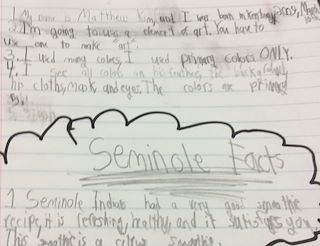 1. My name is Matthew Kim, and I was born in
2. I'm going to use a element of art. You have to
use one to make "art".
3. I used many colors, I used primary colors ONLY.
4. I see all colors on his the background,
his cloths, mask, and eyes. The colors are primary
Seminole Facts
1 Seminole Indians had a very good smoothie
recipe, it is refreshing, healthy, and it satisfies you.
This smoothie is a citrus smoothie.